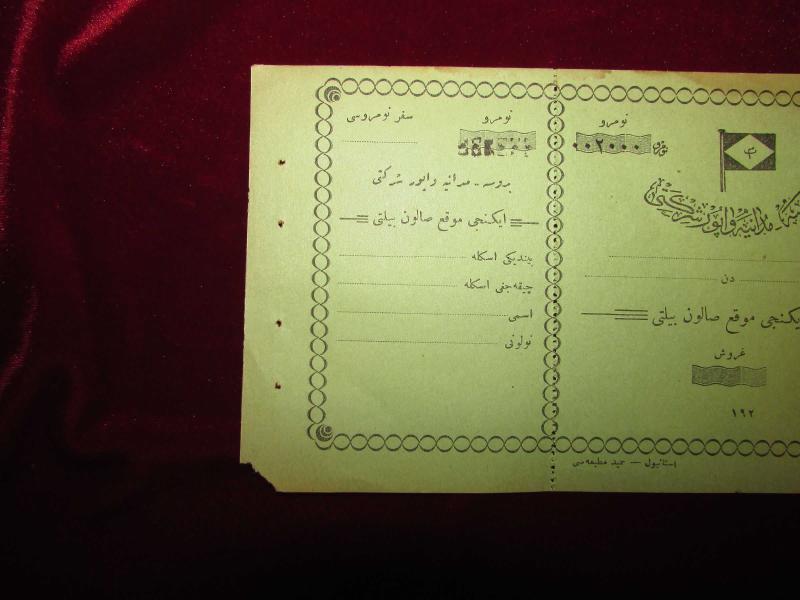 نومرو
سفر نومروسی
بروسه - مدانیه واپور شرکتی
ایکنجی موقع صالون بیلتی
بیندیکی اسکله
چیقه‌جغی اسکله
اسمی
نولونی
نومرو
نومرو ٠٠٢٠٠٠
مدانیه واپور شرکتی
دن
یکنجی موقع صالون بیلتی
غروش
١٩٢
استانبول — حمید مطبعه‌سی